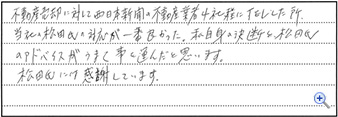 不動産売却に対して西日本新聞の不動産業者4社程にTELした所、
当社の松田氏の対応が一番良かった。私自身の決断と松田氏
のアドバイスがうまく事を運んだと思います。
松田氏には感謝しています。